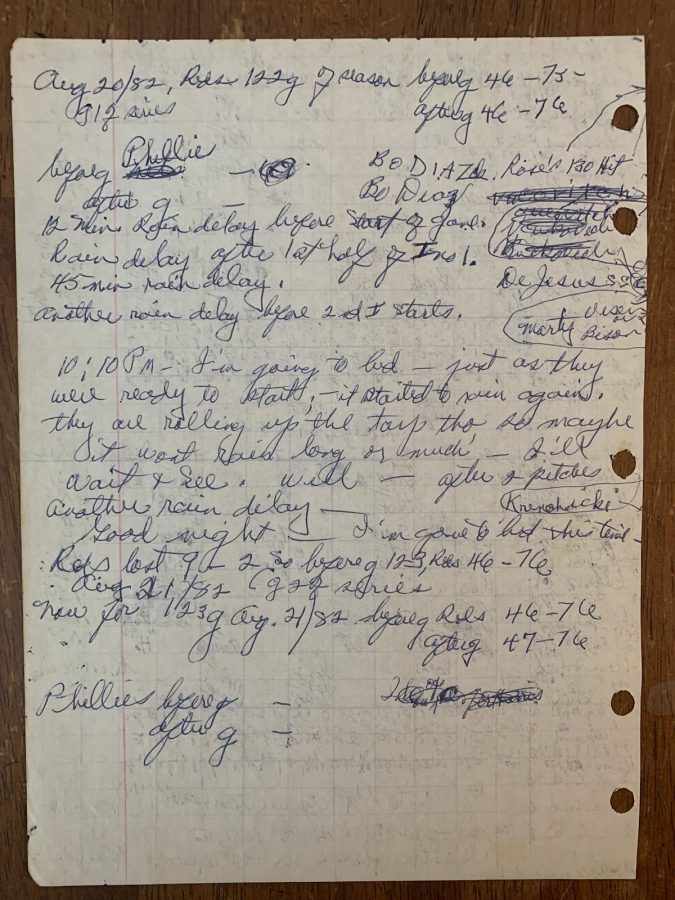 Aug 20/82, Reds 122g of season beforeg 46-75-
g 1 of series afterg 46-76
beforeg Phillie -
after g -
Bo DIAZ Rose's Bo Hit
Bo Diaz
12 min. Rain delay before start of game.
Rain delay after 1st half of I no 1.
45 min rain delay.
De Jesus SS
another rain delay before 2nd I starts.
Marty
Bison
10:10 PM - I'm going to bed - just as they
were ready to start, - it started to rain again.
they are rolling up the tarp tho so maybe
it wont rain long or much - I'll
wait & see. well - after 2 pitches
another rain delay -
Good night - I'm gone to bed this time -
Reds lost 9-2 so beforeg 123, Reds 46-76
Aug 21/82 g 2 of series
Now for 123g Aug. 21/82 beforeg Reds 46-76
afterg 47-76
Phillies beforeg -
after g -